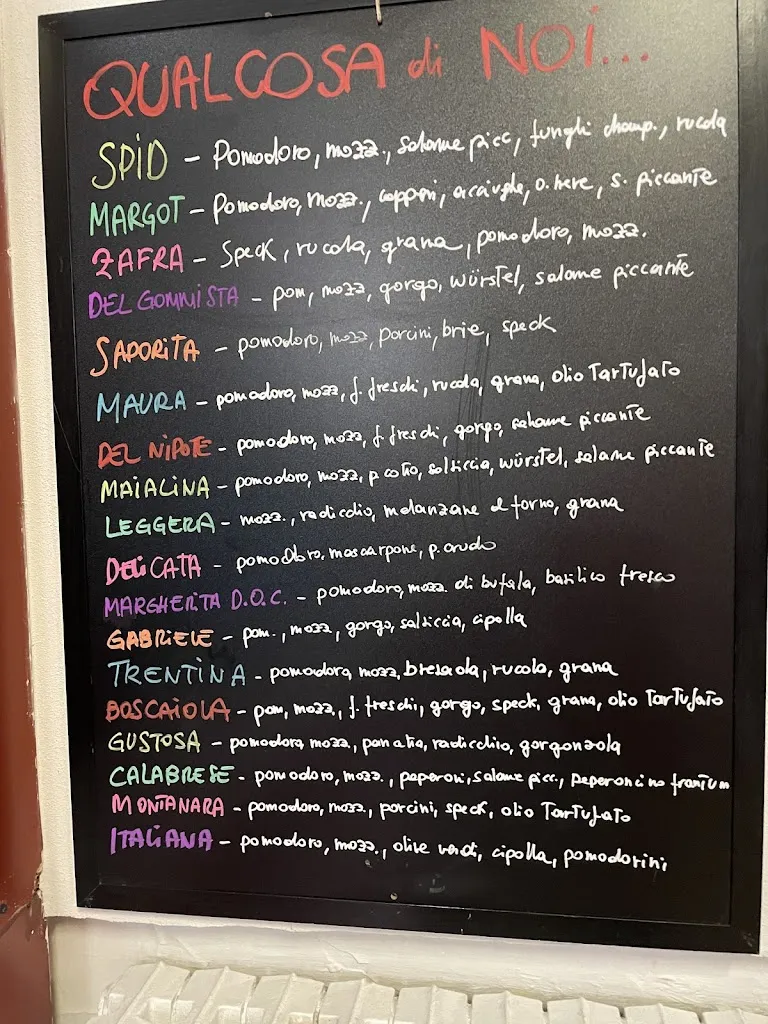 QUALCOSA di NOI...
SPID - Pomodoro, mozz., salame picc, funghi champ., rucola
MARGOT - Pomodoro, Mozz., capperi, acciughe, o. nere, s. piccante
ZAFRA - Speck, rucola, grana, pomodoro, mozz.
DEL GOMMISTA - pom, mozz, gorgo, würstel, salame piccante
SAPORITA - pomodoro, mozz, porcini, brie, speck
MAURA - pomodoro, mozz, f. freschi, rucola, grana, olio Tartufato
DEL NIPOTE - pomodoro, mozz, f. freschi, gorgo, salame piccante
MAIALINA - pomodoro, mozz, p. cotto, salsiccia, würstel, salame piccante
LEGGERA - mozz., radicchio, melanzane al forno, grana
DELICATA - pomodoro, mascarpone, p. crudo
MARGHERITA D.O.C. - pomodoro, mozz. di bufala, basilico fresco
GABRIELE - pom., mozz, gorgo, salsiccia, cipolla
TRENTINA - pomodoro, mozz, bresaola, rucola, grana
BOSCAIOLA - pom, mozz., f. freschi, gorgo, speck, grana, olio Tartufato
GUSTOSA - pomodoro, mozz., pancetta, radicchio, gorgonzola
CALABRESE - pomodoro, mozz., peperoni, salame picc., peperoncino frantum
MONTANARA - pomodoro, mozz., porcini, speck, olio Tartufato
ITALIANA - pomodoro, mozz., olive verdi, cipolla, pomodorini,